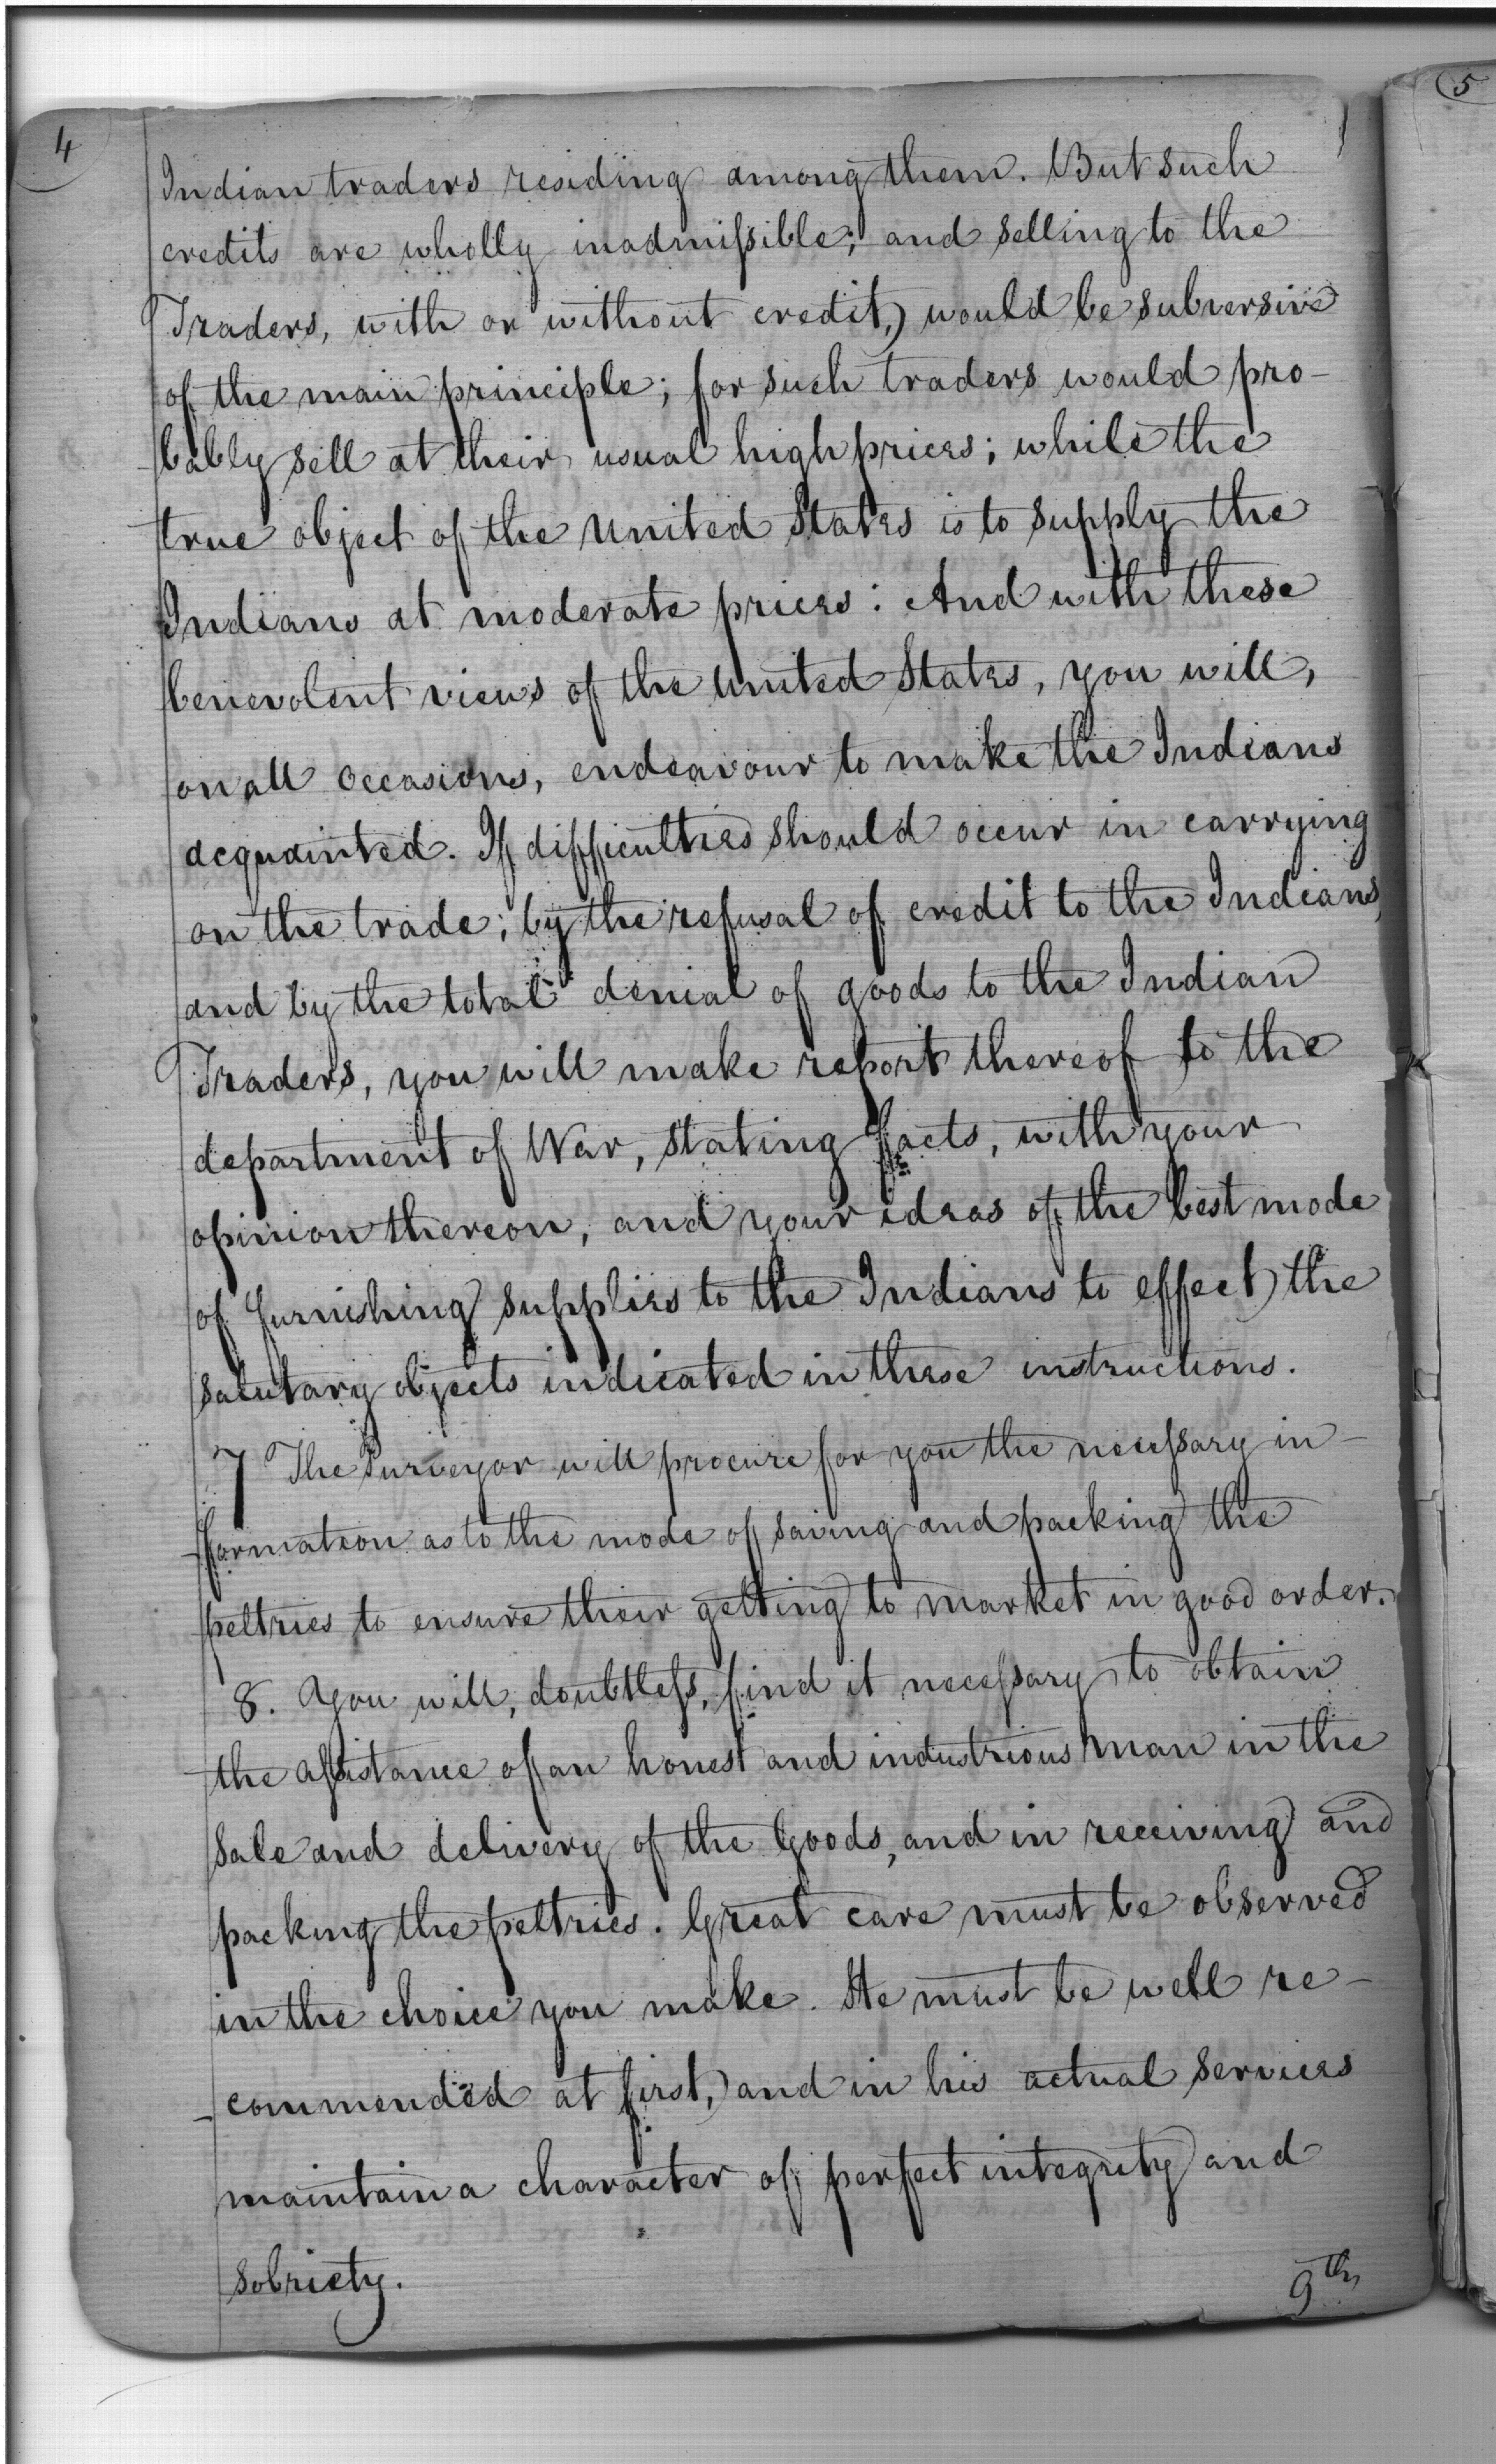 4
5
Indian traders residing among them. But such
credits are wholly inadmissible; and selling to the
Traders, with or without credit, would be subversive
of the main principle; for such traders would pro-
bably sell at their usual high prices; while the
true object of the United States is to supply the
Indians at moderate prices: And with these
benevolent views of the United States, you will,
on all occasions, endeavour to make the Indians
acquainted. If difficulties should occur in carrying
on the trade; by the refusal of credit to the Indians,
and by the total denial of goods to the Indian
Traders, you will make report thereof to the
department of War, stating facts, with your
opinion thereon, and your ideas of the best mode
of furnishing supplies to the Indians to effect the
salutary objects indicated in these instructions.
7 The Purveyor will procure for you the necessary in-
-formation as to the mode of saving and packing the
peltries to ensure their getting to market in good order.
8. You will, doubtless, find it necessary to obtain
the assistance of an honest and industrious man in the
Sale and delivery of the Goods, and in receiving and
packing the peltries. Great care must be observed
in the choice you make. He must be well re-
-commended at first, and in his actual services
maintain a character of perfect integrity and
sobriety.
9th